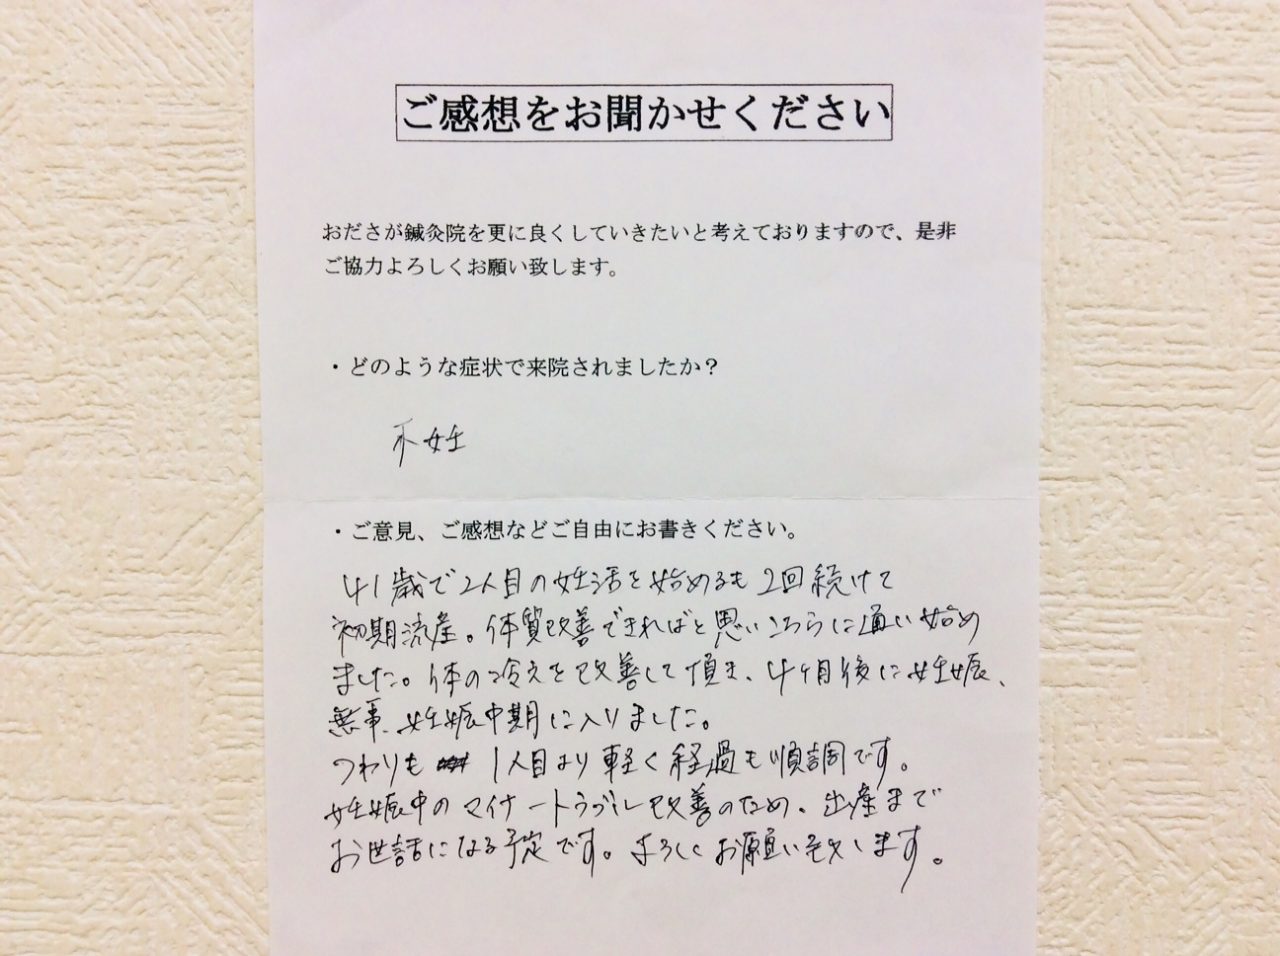 ご感想をお聞かせください
おださが鍼灸院を更に良くしていきたいと考えておりますので、是非
ご協力よろしくお願い致します。
・どのような症状で来院されましたか？
不妊
・ご意見、ご感想などご自由にお書きください。
41歳で2人目の妊活を始めるも2回続けて
初期流産。体質改善できればと思いこちらに通い始め
ました。体の冷えを改善して頂き、4ヶ月後に妊娠、
無事、妊娠中期に入りました。
つわりも1人目より軽く経過も順調です。
妊娠中のマイナートラブル改善のため、出産まで
お世話になる予定です。よろしくお願い致します。